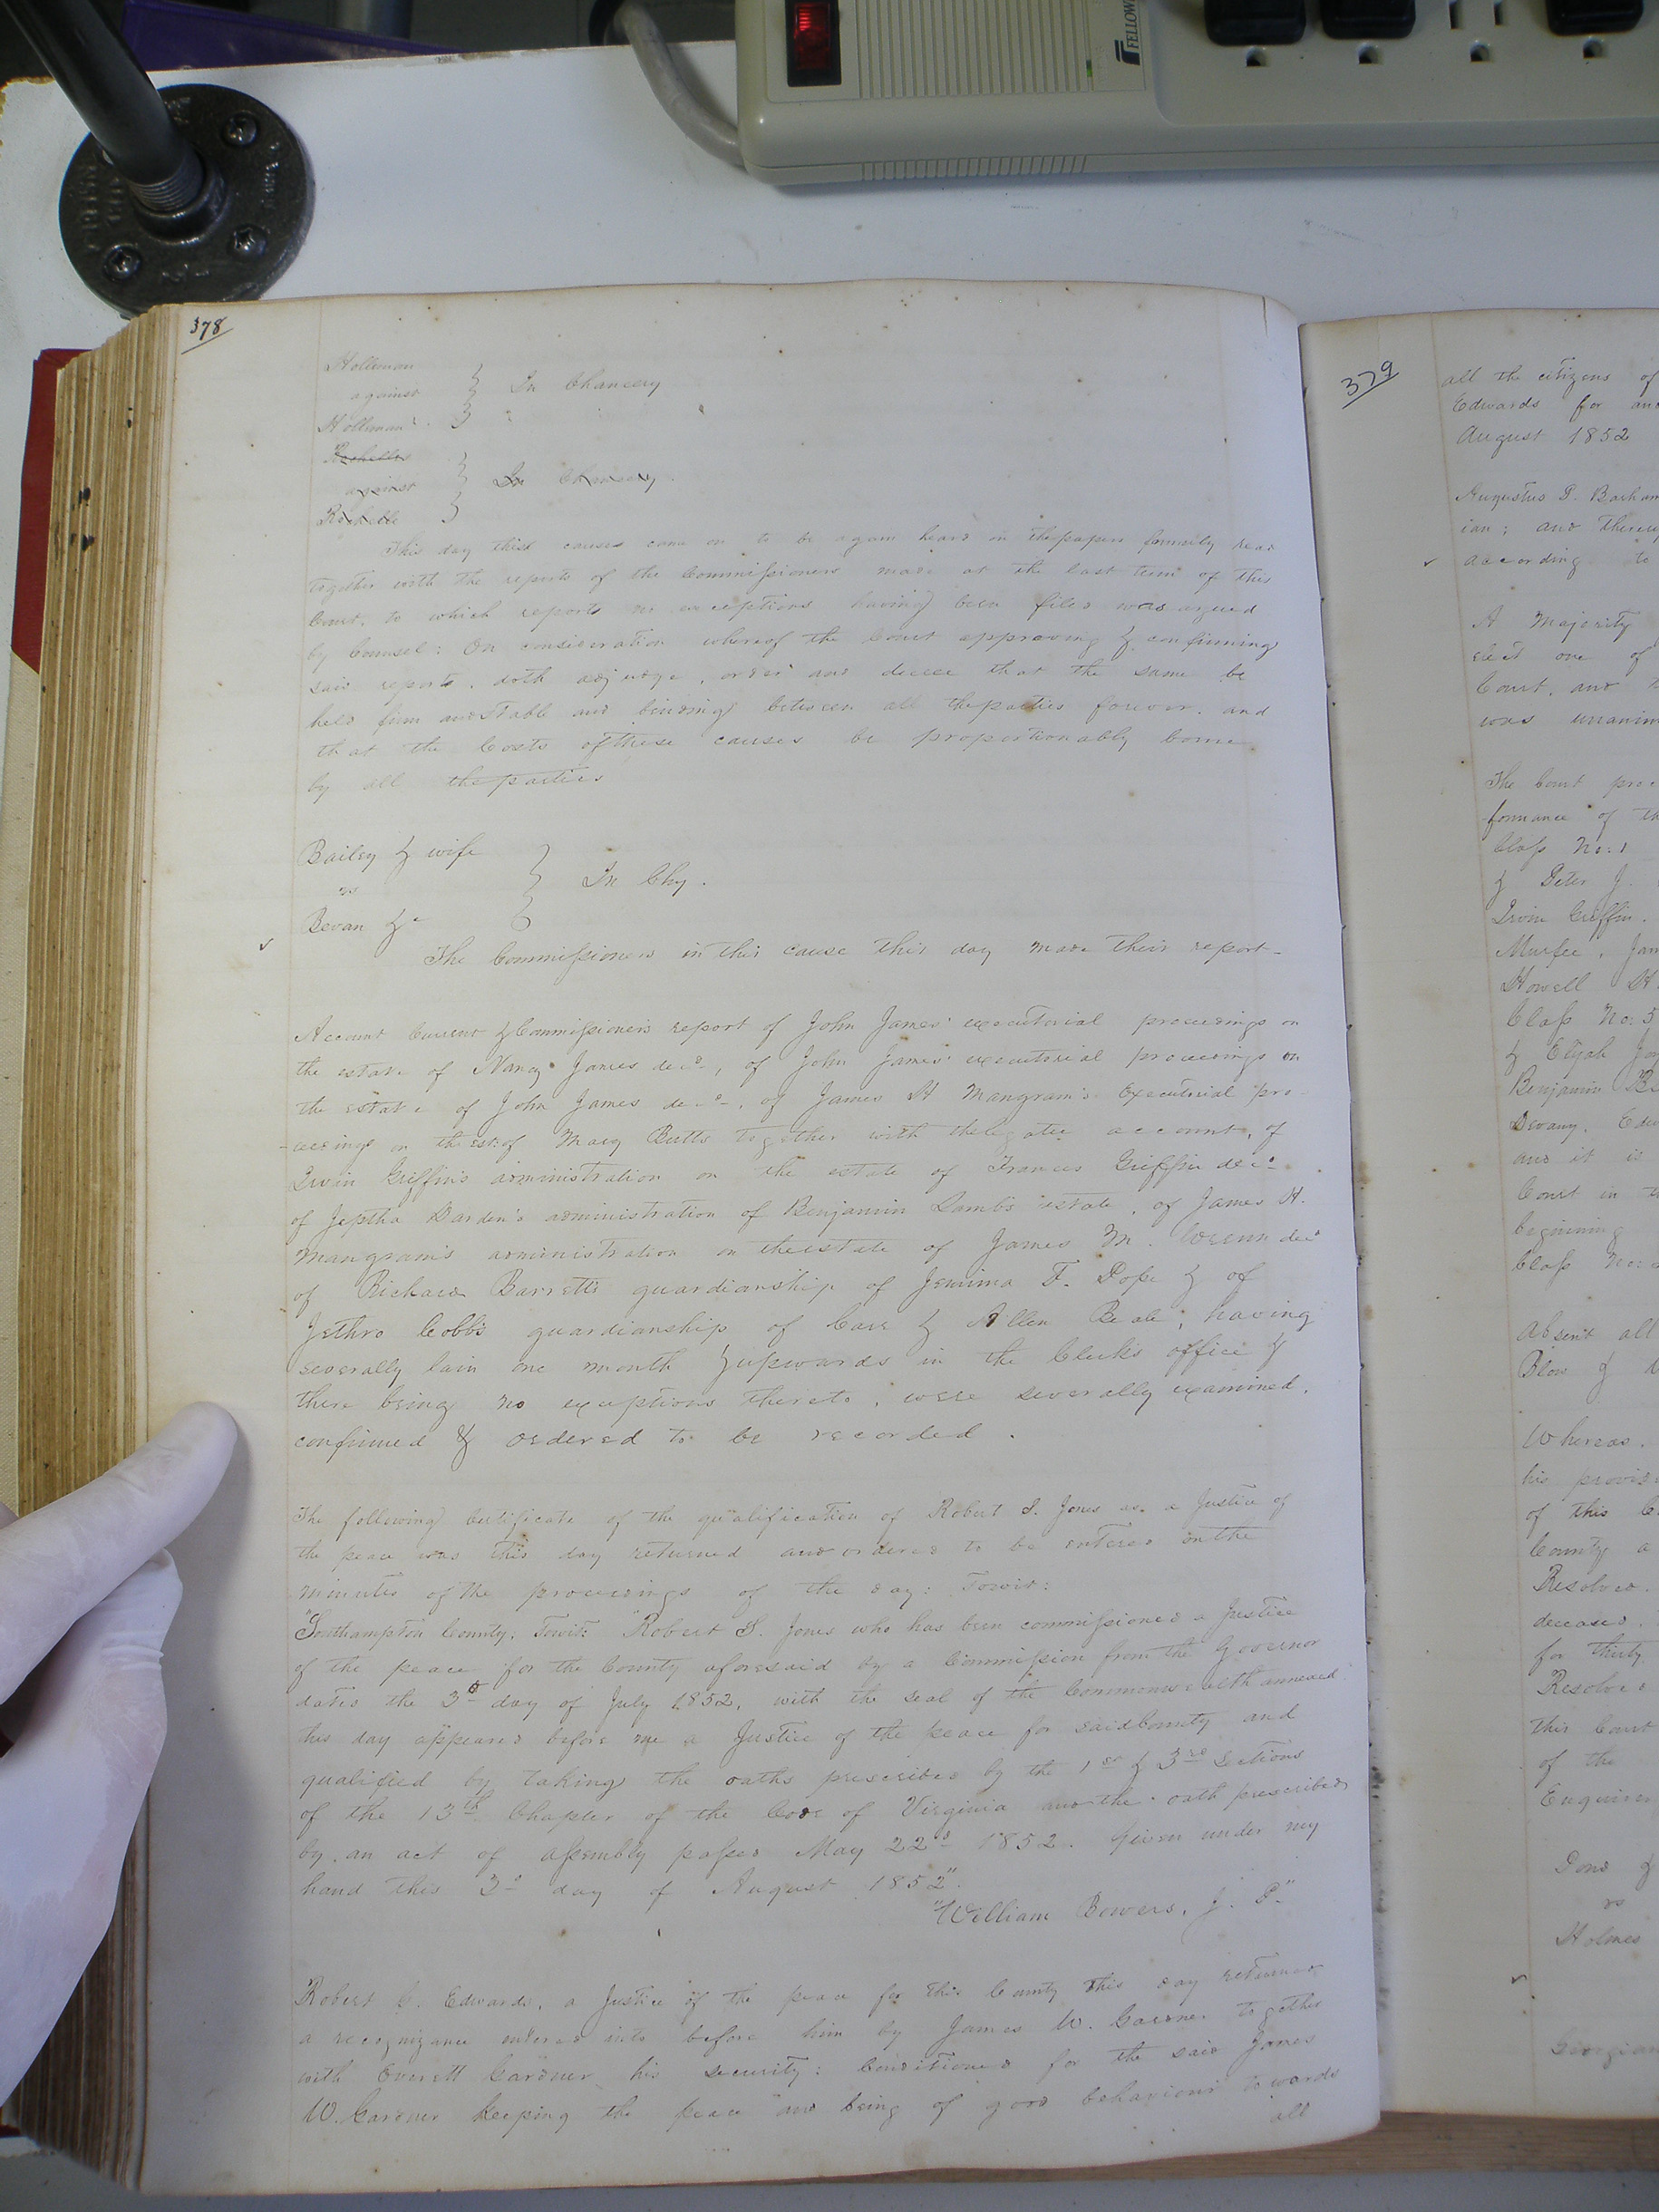 FELLOW
378
Holleman
against } In Chancery
Holleman
Rochelle
against } In Chancery.
Rochelle
This day these causes came on to be again heard on the papers formerly read
together with the reports of the Commissioners made at the last term of this
Court, to which reports no exceptions having been filed was argued
by Counsel: On consideration whereof the Court approving & confirming
said reports, doth adjudge, order and decree that the same be
held firm and stable and binding between all the parties forever, and
that the Costs of these causes be proportionably borne
by all the parties
Bailey & wife
vs } In Chy.
Bevan &c
The Commissioners in this cause this day made their report
Account Current & Commissioner's report of John James' executorial proceedings on
the estate of Nancy James decd, of John James' executorial proceedings on
the estate of John James decd, of James H Mangram's Executorial pro-
-ceedings on the est: of Mary Butts together with the legatee account, of
Irvin Griffin's administration on the estate of Frances Griffin decd
of Jeptha Darden's administration of Benjamin Lamb's estate, of James H.
Mangram's administration on the estate of James M. Wrenn decd
of Richard Barrett's guardianship of Jemima F. Pope & of
Jethro Cobb's guardianship of Cass & Allen Beale; having
severally lain one month & upwards in the Clerk's office &
there being no exceptions thereto, were severally examined,
confirmed & ordered to be recorded.
The following Certificate of the qualification of Robert S. Jones as a Justice of
the peace was this day returned and ordered to be entered on the
minutes of the proceedings of the day: Towit:
"Southampton County, Towit: Robert S. Jones who has been commissioned a Justice
of the peace for the County aforesaid by a Commission from the Governor
dated the 3d day of July 1852, with the seal of the Commonwealth annexed
this day appeared before me a Justice of the peace for said County and
qualified by taking the oaths prescribed by the 1st & 3rd Sections
of the 13th Chapter of the Code of Virginia and the oath prescribed
by an act of assembly passed May 22d 1852. Given under my
hand this 3d day of August 1852".
"William Bowers, J. P."
Robert C. Edwards, a Justice of the peace for this County this day returned
a recognizance entered into before him by James W. Gardner together
with Everett Gardner his security: Conditioned for the said James
W. Gardner keeping the peace and being of good behaviour towards
all
379
all the citizens of
Edwards for and
August 1852
Augustus P. Barham
ian; and thereup
according to
A Majority
elect one of
Court, and
was unanim
The Court proc
-formance of th
Class No: 1
& Peter J.
Irvin Griffin.
Murfee, Jam
Howell
Class No: 5
& Elijah
Benjamin
Devany, Edw
and it is
Court in
beginning
Class No:
Absent all
Blow &
Whereas,
his provid
of this C
County a
Resolved,
deceased,
for thirty
Resolved
this Court
of the
Enquirer
Pond &
vs
Holmes